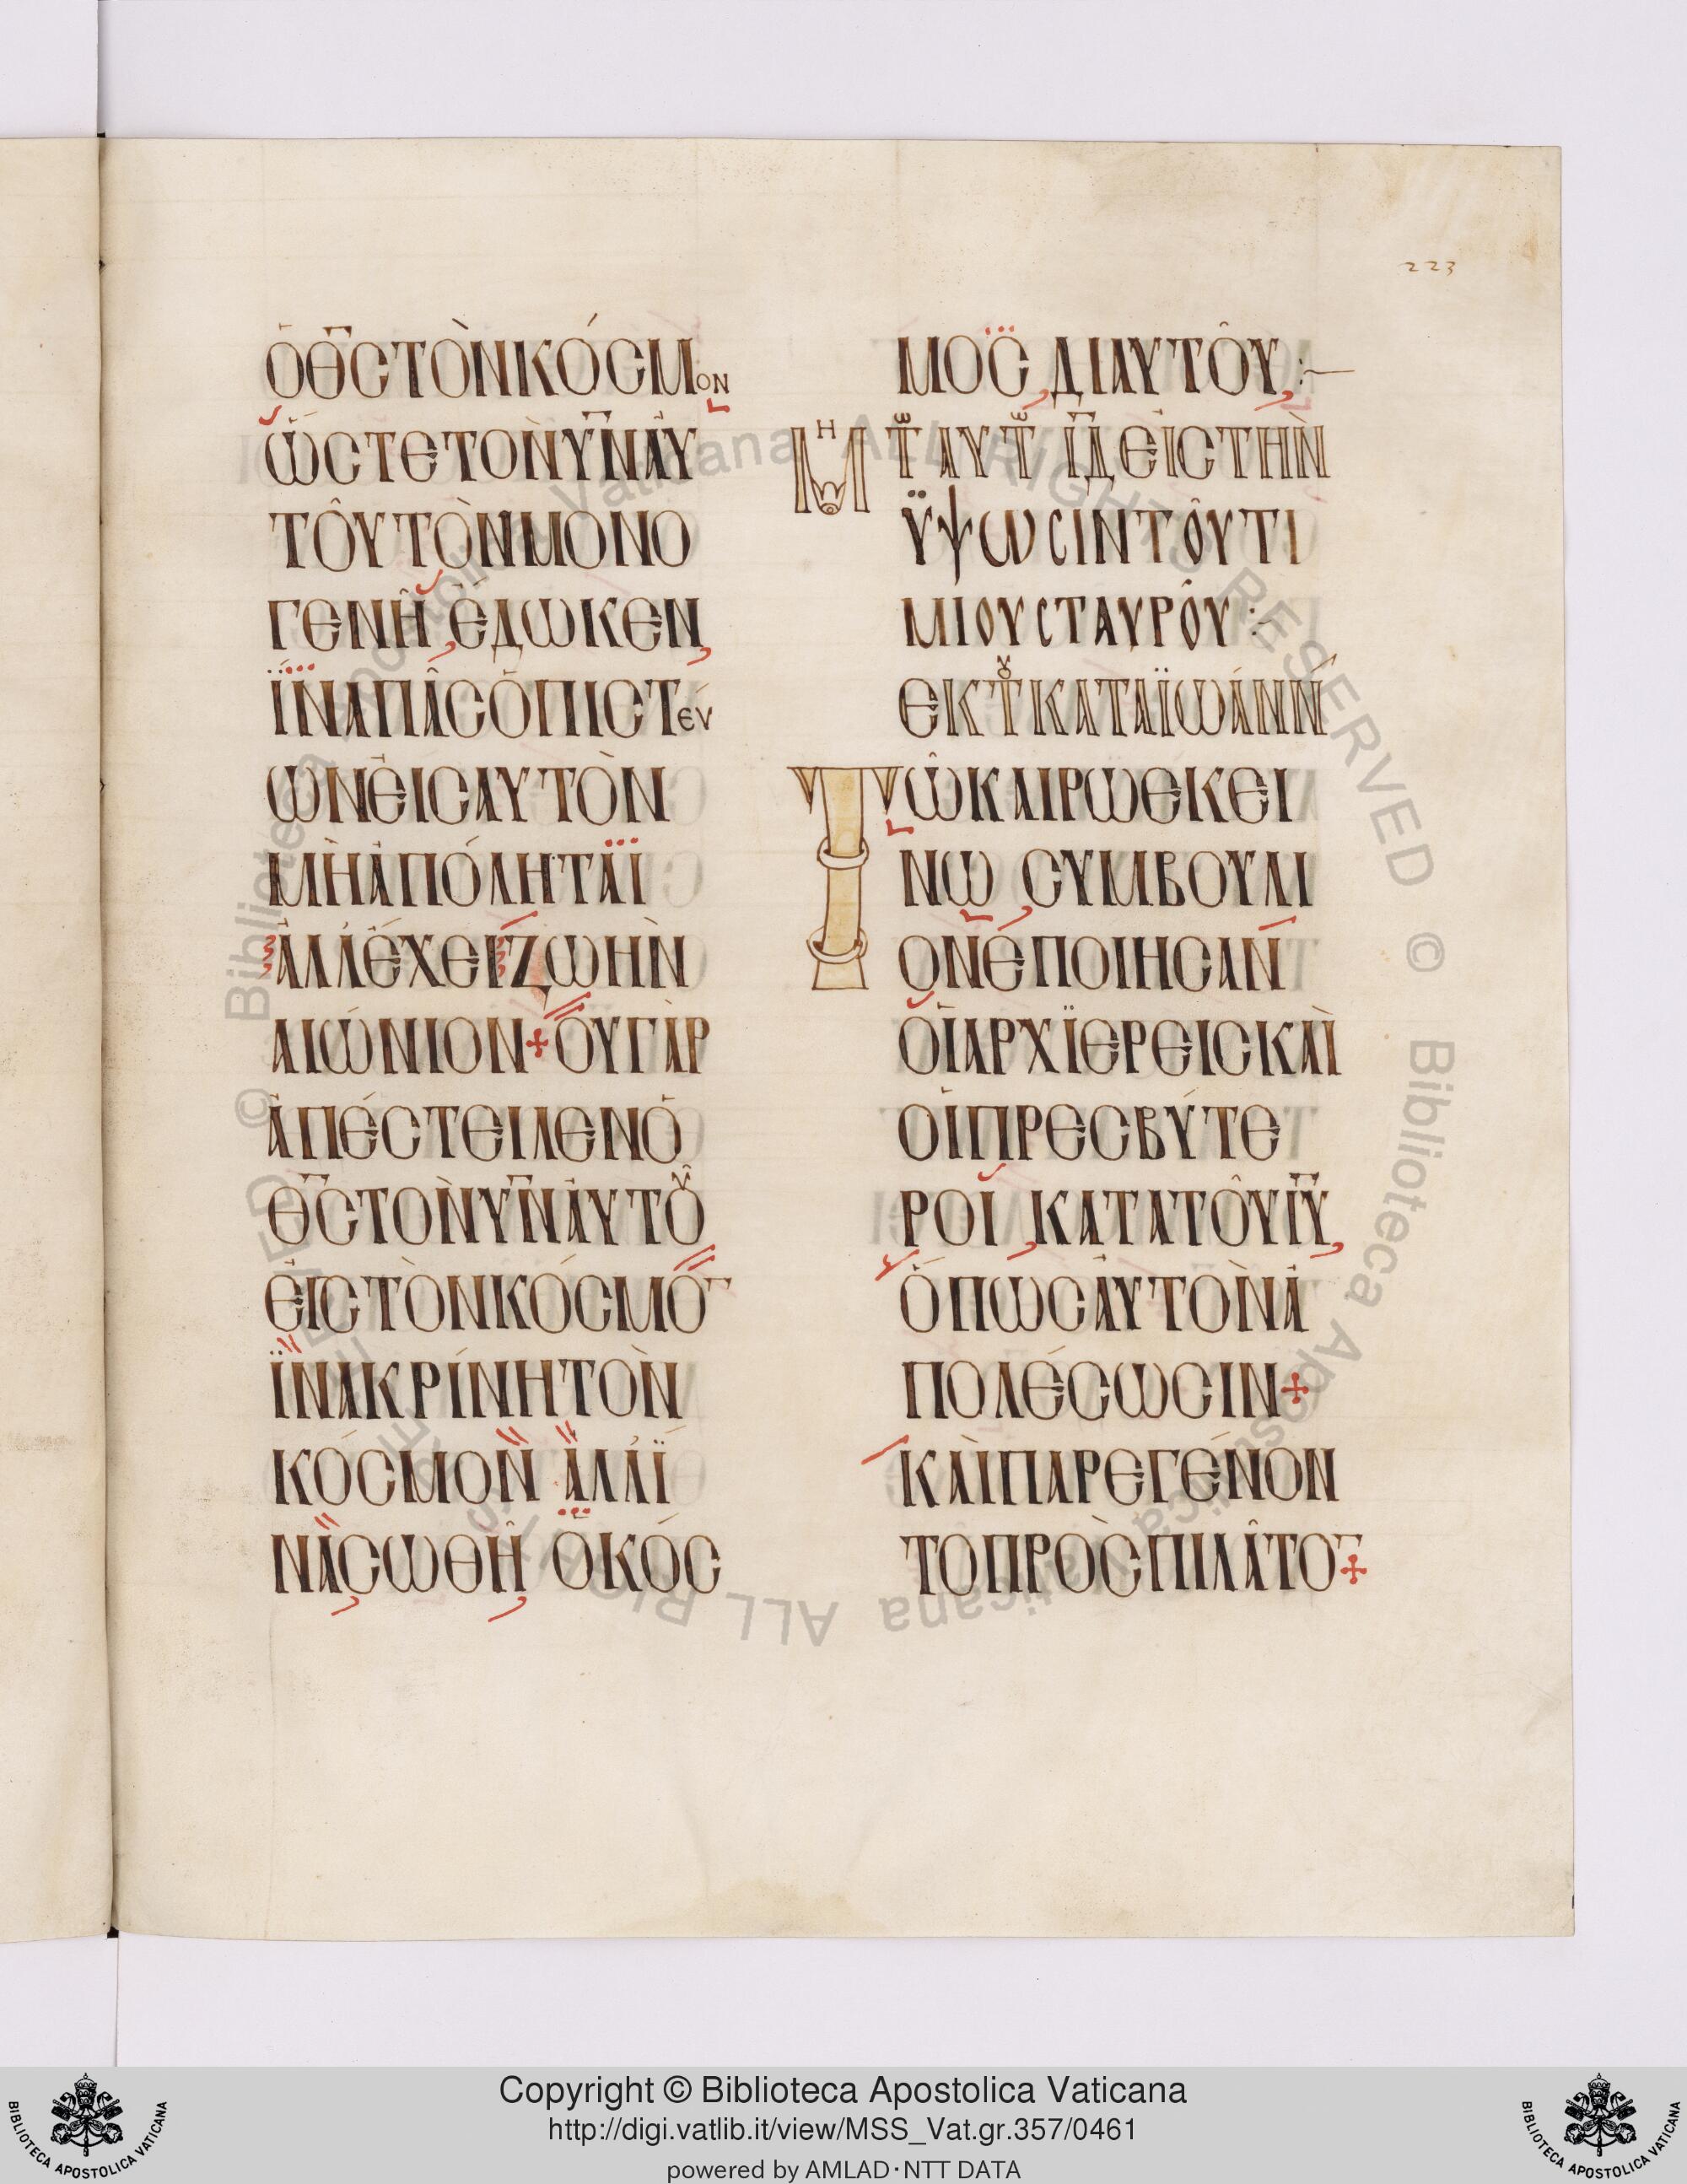 223
ὉΘ̅ΣΤῸΝΚΌΣΜΟΝ
ὭΣΤΕΤΟΝῪΝ̅ἈΥ
ΤΟΥ͂ΤῸΝΜΟΝΟ
ΓΕΝΗ͂ ἜΔΩΚΕΝ,
ΪΝΑΠΑ͂ΣὉΠΙΣΤΕΥ
ΩΝἘΙΣΑΥΤῸΝ
ΜῊἈΠΌΛΗΤΑΪ
ἈΛΛἜΧΕΙΖΩΗῚΝ
ΑΙΏΝΙΟΝ+ΟΥΓᾺΡ
ἈΠΈΣΤΕΙΛΕΝὉ
Θ̅ΣΤΟΝῪΝ̅ἈΥΤΟΥ͂
ἘΙΣΤῸΝΚΌΣΜΟ̅
ΪΝΑΚΡΊΝΗΤΟΝ̀
ΚΌΣΜΟΝ ἈΛΛΪ
ΝΑΣΩΘΗ͂ ὉΚΌΣ
ΜΟΣ ΔΙΑΥΤΟΥ͂:~
ΜΗ Τ ΑΥΤ ΙΔ̅ ΕἸΣΤΗΝ̀
ΫΨΩΣΙΝΤΟΥ͂ΤΙ
ΜΙΟΥΣΤΑΥΡΟΥ͂:~
ΕΚΤΚΑΤΑΪΩΆΝΝ
ΤΩ͂ΚΑΙΡΩΕΚΕΙ
ΝΩ ΣΥΜΒΟΥΛΙ
ΟΝἘΠΟΙΗΣΑΝ
ΟἹΑΡΧΪΕΡΕΙΣΚΑῚ
ΟἹΠΡΕΣΒΎΤΕ
ΡΟΙ, ΚΑΤΑΤΟΥ͂ΙΥ̅,
ὍΠΩΣἈΥΤΟΝ̀Ἀ
ΠΟΛΈΣΩΣΙΝ+
ΚΑῚΠΑΡΕΓΈΝΟΝ
ΤΟΠΡΟΣ̀ΠΙΛΑ͂ΤΟ̅+
Copyright © Biblioteca Apostolica Vaticana
http://digi.vatlib.it/view/MSS_Vat.gr.357/0461
powered by AMLAD·NTT DATA
BIBLIOTECA APOSTOLICA VATICANA
BIBLIOTECA APOSTOLICA VATICANA